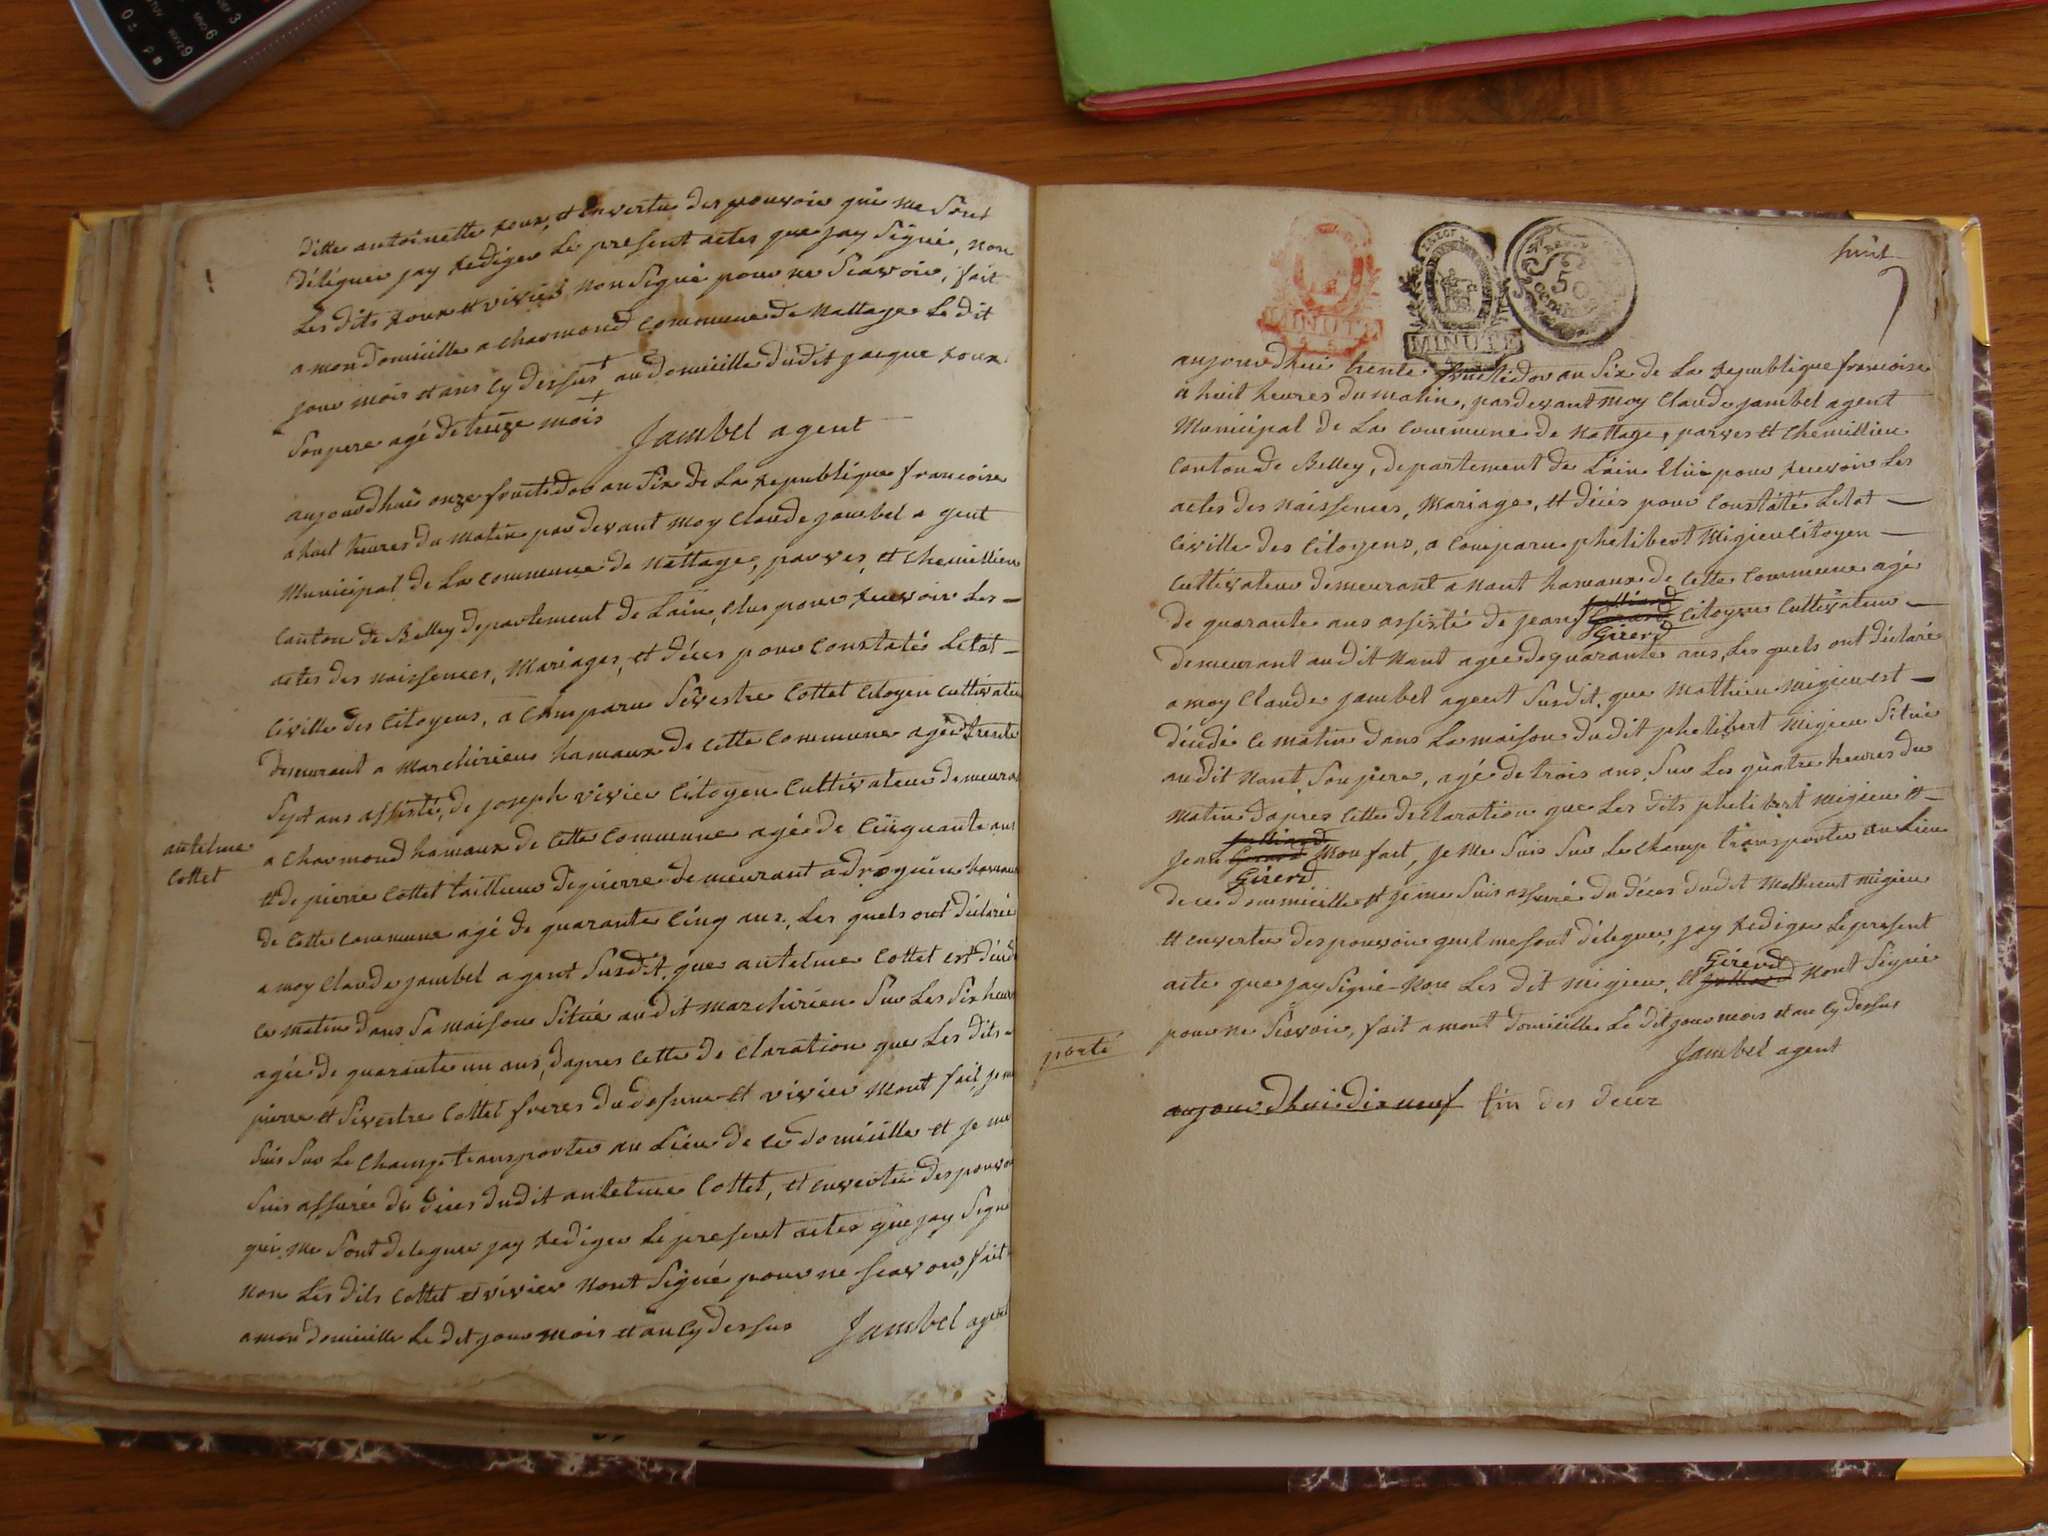 ditte antoinette roux, et en vertu des pouvoir qui me sont
délégués jay rediger le present actes que jay signé, non
les dits roux et vivier non signé pour ne scavoir, fait
a mon domicille a charmond commune de nattage le dit
jour mois et ans cy dessus + au domicille dudit jacque roux
son pere agé de treize mois +
Jambel agent
aujourdhui onze fructidor an six de la republique francoise
a huit heures du matin par devant moy claude jambel agent
municipal de la commune de nattage, parves, et chemillieu
canton de Belley departement de lain, elus pour recevoir les
actes des naissences, mariages, et déces pour constaté letat
civille des citoyens, a comparu sivestre cottet citoyen cultivateu
demeurant a marchirieu hamaux de cette commune agé d trente
sept ans assisté, de joseph vivier citoyen cultivateur demeuran
antelme
cottet
a charmond hamaux de cette commune agée de cinquante ans
et de pierre cottet tailleur de pierre demeurant a droguin hamau
de cette commune agé de quarante cinq ans, les quels ont déclarée
a moy claude jambel agent susdit, que antelme cottet est décédé
ce matin dans sa maison situé audit marchirieu sur les six heur
agée de quarante un ans, dapres cette declaration que les dits
pierre et sivestre cottet freres du defunt et vivier mont fait, je me
suis sur le champ transporter au lieu de ce domicille et je me
suis assurée du déces dudit antelme cottet, et en vertu des pouvoi
qui me sont deleguer jay rediger le present actes que jay signé
non les dits cottet et vivier nont signé pour ne scavoir, fait
a mon domicille le dit jour mois et an cy dessus Jambel agent
huit
7
MINUTE
MINUTE
50
aujourdhui trente fructidor an six de la republique francoise
a huit heures du matin, par devant moy claude jambel agent
municipal de la commune de nattage, parves et chemillieu
canton de Belley, departement de lain elui pour recevoir les
actes des naissences, mariage, et déces pour constaté letat
civille des citoyens, a comparu phelibert migieu citoyen
cultivateur demeurant a nant hamaux de cette commune agé
de quarante ans assisté de jean Girerd citoyen cultivateur
demeurant audit nant agée de quarante ans, les quels ont déclaré
a moy claude jambel agent susdit, que mathieu migieu est
décédé ce matin dans la maison dudit phelibert migieu situé
audit nant, son pere, agé de trois ans, sur les quatre heures du
matin dapres cette declaration que les dits phelibert migieu et
jean Girerd mon fait, je me suis sur le champ transporter au lieu
de ce dommicille et je me suis assuré du déces dudit mathieu migieu
et en vertu des pouvoir quil me sont déleguer, jay rediger le present
acte que jay signé non les dit migieu, et Girerd nont signé
pour ne scavoir, fait a mont domicille le dit jour mois et an cy dessus
porté
Jambel agent
aujourdhui dix neuf fin des decez